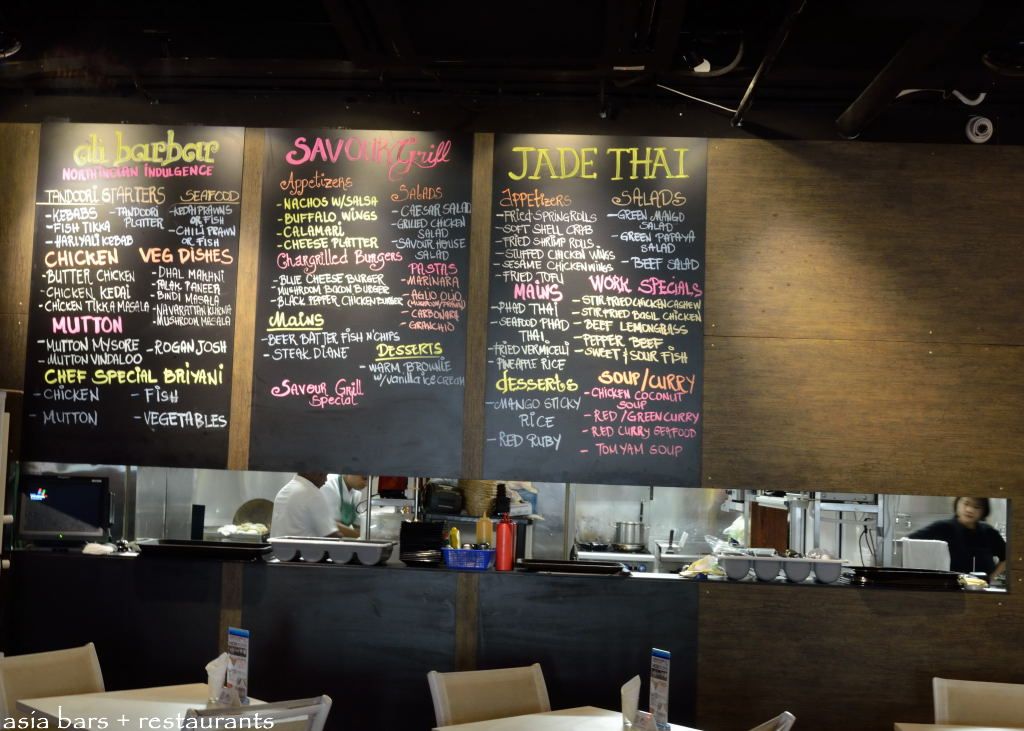 ali barbar
NORTH INDIAN INDULGENCE
TANDOORI STARTERS
- KEBABS
- FISH TIKKA
- HARIYALI KEBAB
- TANDOORI
PLATTER
SEAFOOD
- KEDAI PRAWNS
OR FISH
- CHILI PRAWN
OR FISH
CHICKEN
- BUTTER CHICKEN
- CHICKEN KEDAI
- CHICKEN TIKKA MASALA
VEG DISHES
- DHAL MAKHNI
- PALAK PANEER
- BINDI MASALA
- NAVARATTAN KURMA
- MUSHROOM MASALA
MUTTON
- MUTTON MYSORE
- MUTTON VINDALOO
- ROGAN JOSH
CHEF SPECIAL BRIYANI
- CHICKEN
- MUTTON
- FISH
- VEGETABLES
SAVOUR Grill
Appetizers
- NACHOS W/SALSA
- BUFFALO WINGS
- CALAMARI
- CHEESE PLATTER
SALADS
- CAESAR SALAD
- GRILLED CHICKEN
SALAD
- SAVOUR HOUSE
SALAD
Chargrilled Burgers
- BLUE CHEESE BURGER
- MUSHROOM BACON BURGER
- BLACK PEPPER CHICKEN BURGER
PASTAS
- MARINARA
- AGLIO OLIO
- CARBONARA
- GRANCHIO
Mains
- BEER BATTER FISH N'CHIPS
- STEAK DIANE
DESSERTS
- WARM BROWNIE
w/vanilla ice cream
Savour Grill
Special
JADE THAI
Appetizers
- FRIED SPRING ROLLS
- SOFT SHELL CRAB
- FRIED SHRIMP ROLLS
- STUFFED CHICKEN WINGS
- SESAME CHICKEN WINGS
- FRIED TOFU
SALADS
- GREEN MANGO
SALAD
- GREEN PAPAYA
SALAD
- BEEF SALAD
MAINS
- PHAD THAI
- SEAFOOD PHAD
THAI
- FRIED VERMICELI
- PINEAPPLE RICE
WORK SPECIALS
- STIR FRIED CHICKEN CASHEW
- STIR FRIED BASIL CHICKEN
- BEEF LEMONGRASS
- PEPPER BEEF
- SWEET & SOUR FISH
desserts
- MANGO STICKY
RICE
- RED RUBY
SOUP/CURRY
- CHICKEN COCONUT
SOUP
- RED/GREEN CURRY
- RED CURRY SEAFOOD
- TOM YAM SOUP
asia bars + restaurants